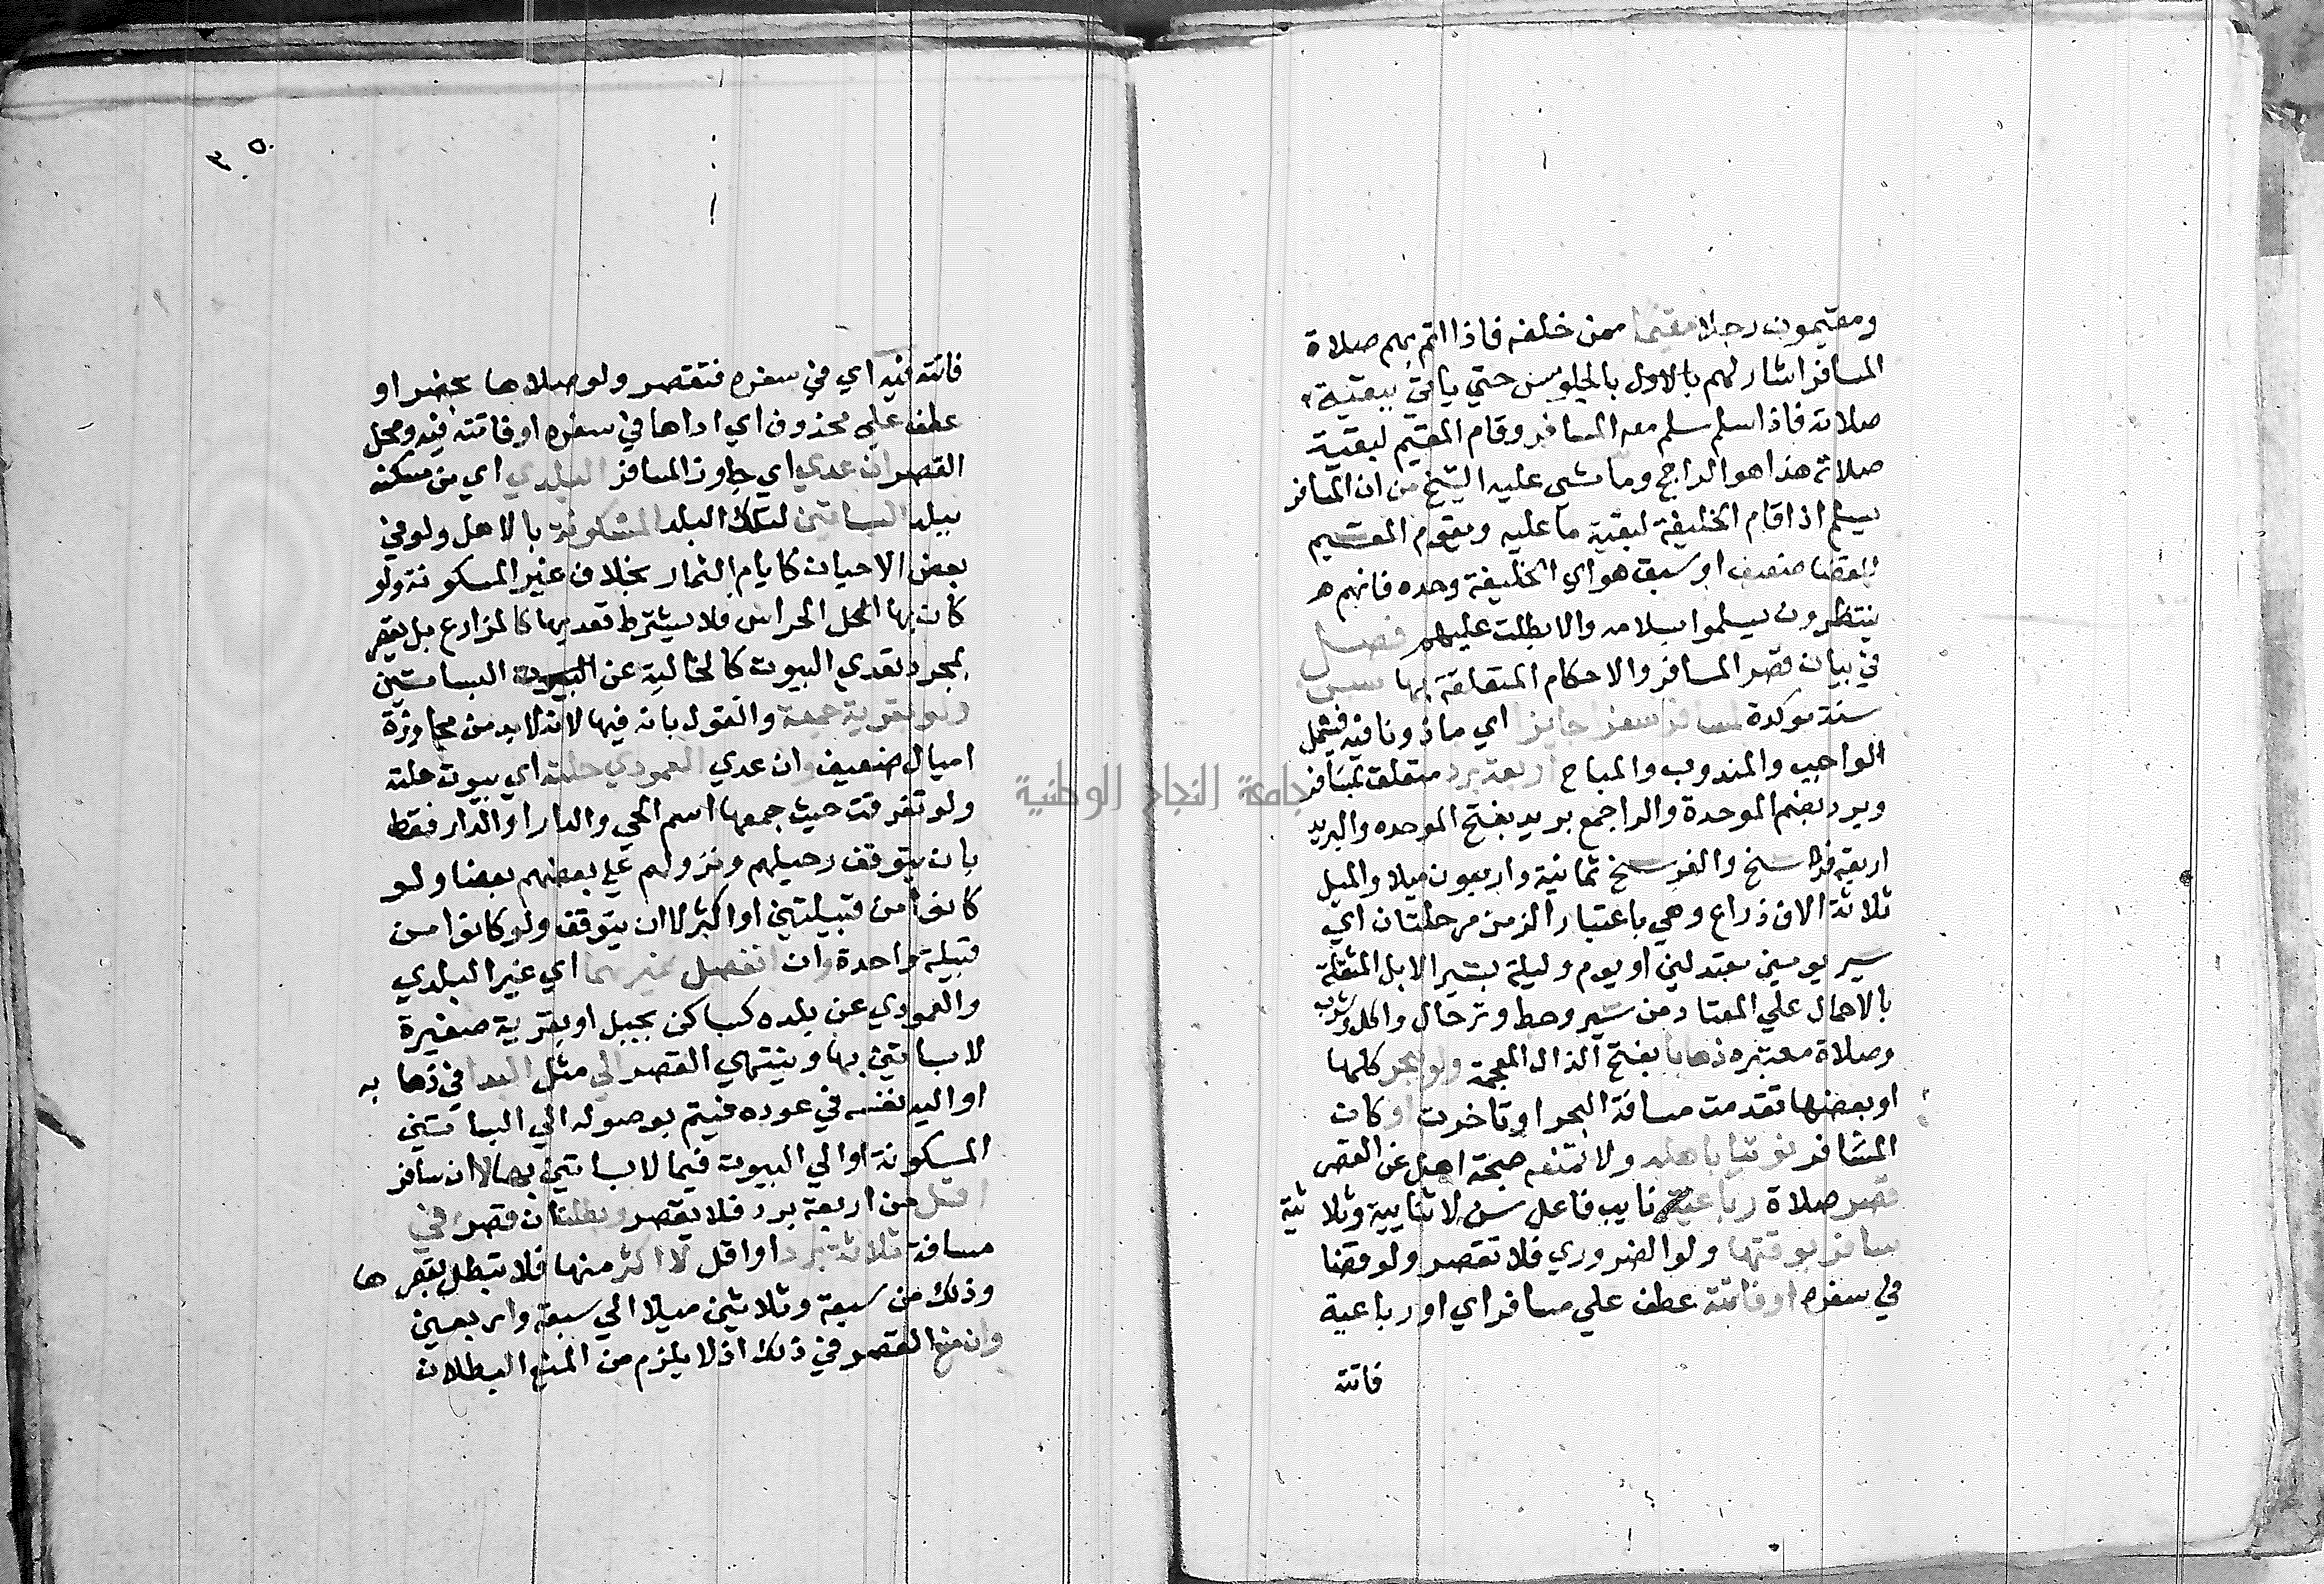 ومقيمون رجلا مقيما ممن خلفه فاذا اتم بهم صلاة
المسافر اشار لهم بالاول بالجلوس حتي ياتي ببقية
صلاته فاذا سلم سلم معه المسافر وقام المقيم لبقية
صلاته هذا هو الراجح وما مشي عليه الشيخ من ان المسافر
يسلم اذا قام الخليفة لبقية ما عليه ويقوم المقيم
للقضا ضعيف او سبق هو اي الخليفة وحده فانهم
ينتظرون ليسلموا بسلامه والا بطلت عليهم فصل
في بيان قصر المسافر والاحكام المتعلقة بها سن
سنة موكدة لمسافر سفرا جايزا اي ماذونا فيه فيشمل
الواجب والمندوب والمباح اربعة برد متعلق بمسافر
وبرد بضم الموحدة والرا جمع بريد بفتح الموحده والبريد
اربعة فراسخ والفرسخ ثمانية واربعون ميلا والميل
ثلاثة الاف ذراع وهي باعتبار الزمن مرحلتان اي
سير يومين معتدلين او يوم وليلة بسير الابل المثقلة
بالاحمال علي المعتاد من سير وحط وترحال واكل وشرب
وصلاة معتبره ذهابا بفتح الذال المعجمة ولو ببحر كلها
او بعضها تقدمت مسافة البحر او تاخرت او كان
المسافر نوتيا باهله ولا تمنعه صحبة اهله عن القصر
قصر صلاة رباعية نايب فاعل سن لا ثنايية وثلاثية
سافر بوقتها ولو الضروري فلا تقصر ولو قضا
في سفره او فايتة عطف علي مسافر اي او رباعية
فاتته
٣٥
فاتته فيه اي في سفره فتقصر ولو صلاها بحضر او
عطف علي محذوف اي اداها في سفره او فاتته فيه ومحل
القصر ان عدي اي جاوز المسافر البلدي اي من مسكنه
ببلد البساتين لتلك البلد المسكونة بالاهل ولو في
بعض الاحيان كايام الثمار بخلاف غير المسكونة ولو
كان بها المحل الحراس فلا يشترط تعديها كالمزارع بل يقصر
بمجرد تعدي البيوت كالخالية عن البساتين
ولو بقرية جمعة والقول بانه فيها لابد من مجاوزة
اميال ضعيف وان عدي العمودي حلته اي بيوت حلته
ولو تفرقت حيث جمعها اسم الحي والدار او الدار فقط
بان يتوقف رحيلهم ونزولهم علي بعضهم بعضا ولو
كانوا من قبيلتين او اكثر لا ان يتوقف ولو كانوا من
قبيلة واحدة وان انفصل غيرهما اي غير البلدي
والعمودي عن بلده كساكن بجبل او بقرية صغيرة
لا بساتين بها وينتهي القصر الي مثل البدا في ذهابه
او اليه نفسه في عوده فيتم بوصوله الي البساتين
المسكونة او الي البيوت فيما لا بساتين بها لا ان سافر
اقل من اربعة برد فلا يقصر وبطلت ان قصر في
مسافة ثلاثة برد او اقل لا اكثر منها فلا تبطل بقصرها
وذلك من سبعة وثلاثين ميلا الي سبعة واربعين
وان منع القصر في ذلك اذ لا يلزم من المنع البطلان
جامعة النجاح الوطنية